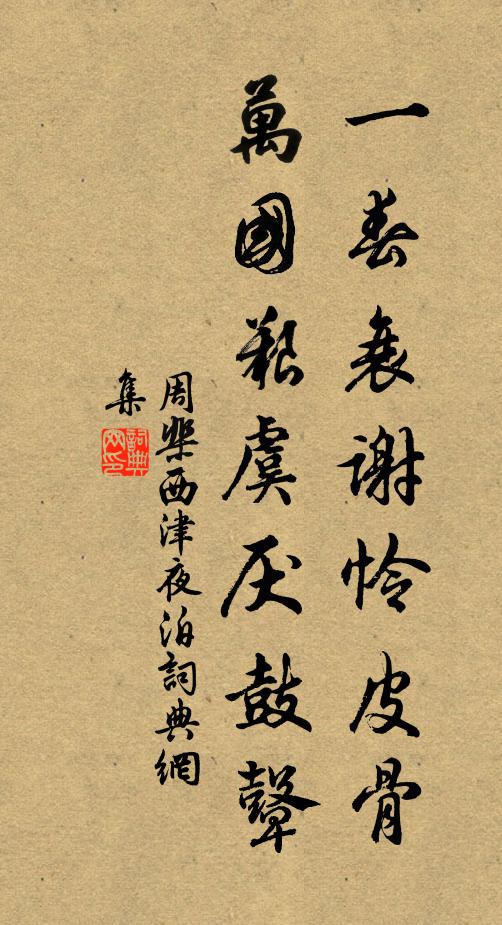 一春衰谢怜皮骨
萬國艱虞厌鼓鼙
周棐西津夜泊詞典網
集
詞典网印